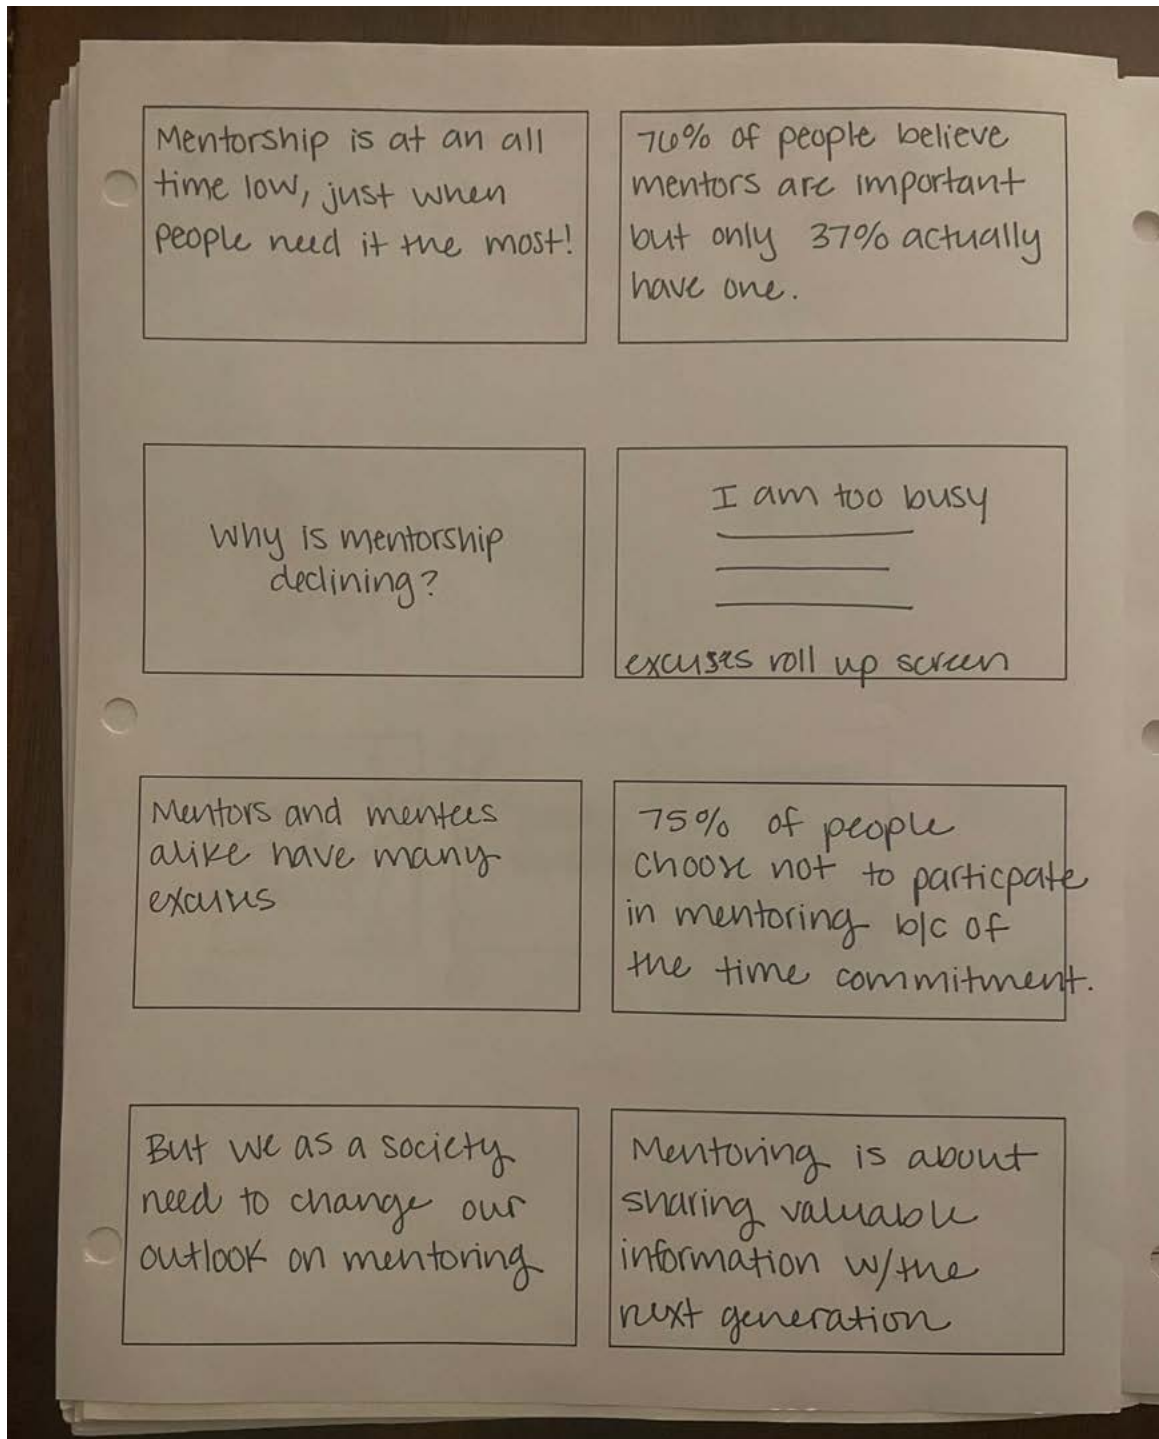 Mentorship is at an all
time low, just when
people need it the most!
76% of people believe
mentors are important
but only 37% actually
have one.
Why is mentorship
declining?
I am too busy
excuses roll up screen
Mentors and mentees
alike have many
excuses
75% of people
choose not to particpate
in mentoring b/c of
the time commitment.
But we as a society
need to change our
outlook on mentoring
Mentoring is about
sharing valuable
information w/the
next generation